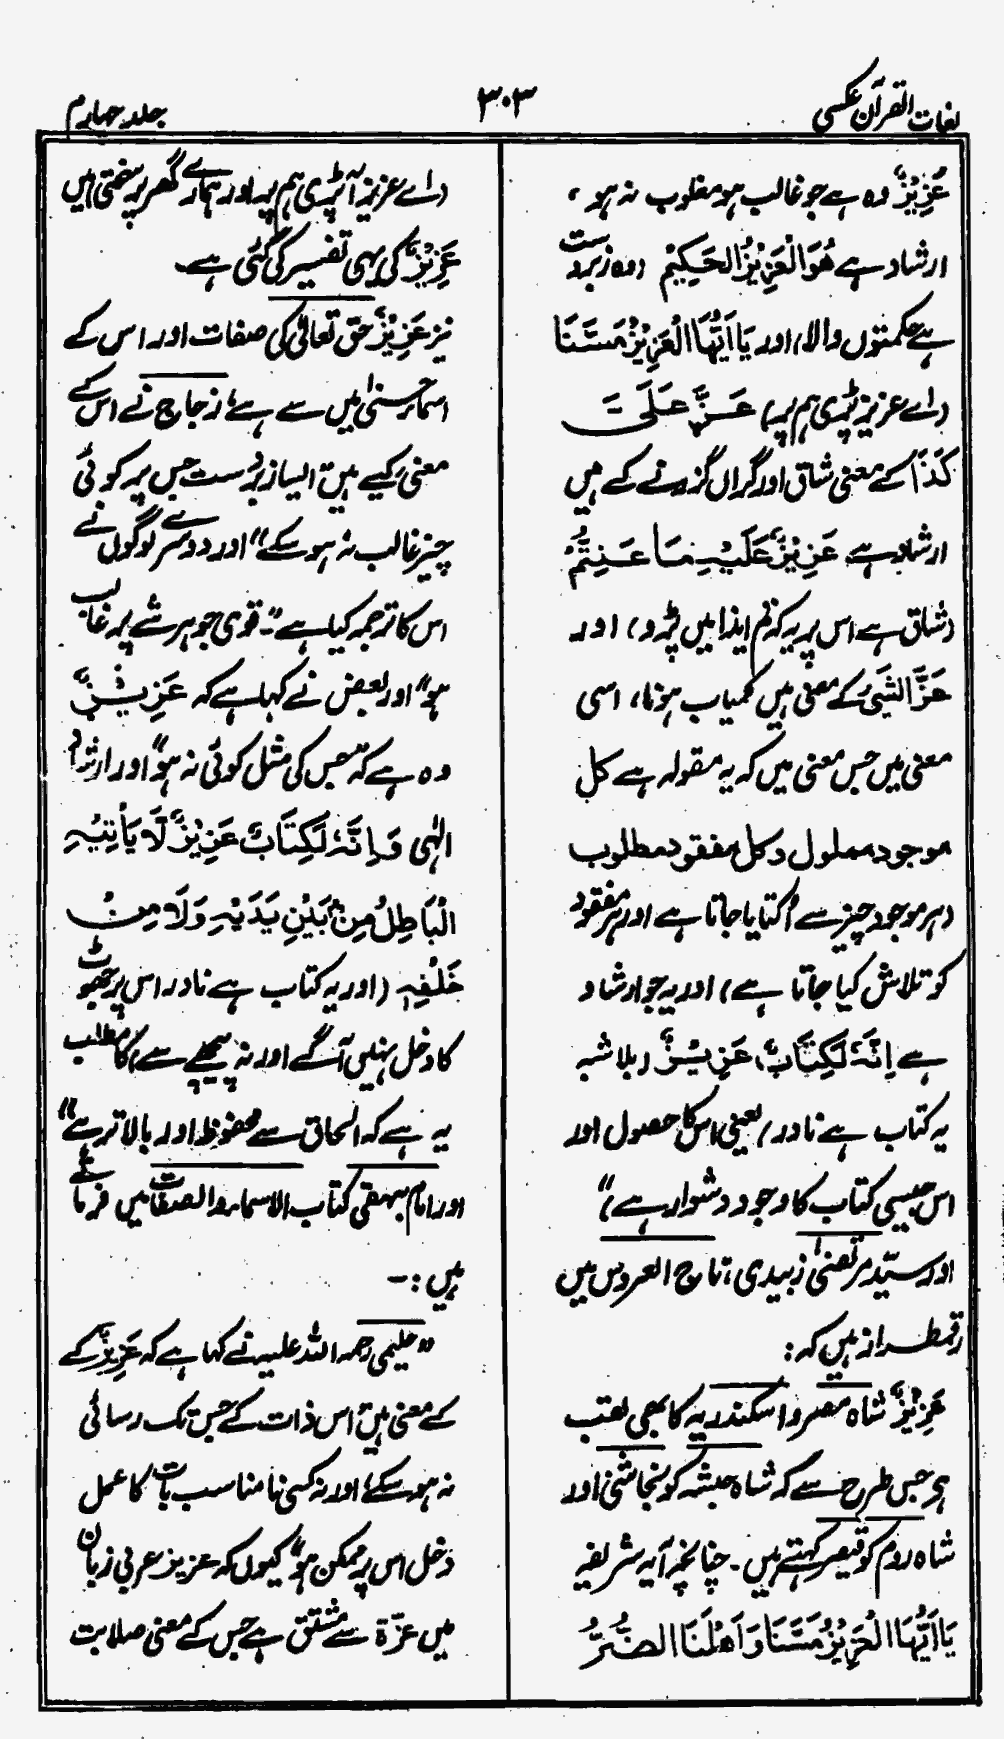 لغات القرآن عکسی
۳۰۳
جلد چہارم
عَزِیْزٌ وہ ہے جو غالب ہو مغلوب نہ ہو ،
ارشاد ہے ھُوَالْعَزِیْزُ الْحَکِیْمُ (وہ زبردست
ہے حکمتوں والا) اور یَا اَیُّھَا الْعَزِیْزُ مَسَّنَا
(اے عزیز پڑی ہم پر) عَــزَّ عَلَیَّ
کَذَا کے معنی شاق اور گراں گزرنے کے ہیں
ارشاد ہے عَزِیْزٌ عَلَیْہِ مَا عَنِتُّمْ
(شاق ہے اس پر یہ کہ تم ایذا میں پڑو) اور
عَزَّ الشَّیْءُ کے معنی ہیں کمیاب ہونا، اسی
معنی میں جس معنی میں کہ یہ مقولہ ہے کل
موجود مملول وکل مفقود مطلوب
(ہر موجود چیز سے اُکتایا جاتا ہے اور ہر مفقود
کو تلاش کیا جاتا ہے) اور یہ جو ارشاد
ہے اِنَّہٗ لَکِتَابٌ عَزِیْزٌ (بلا شبہ
یہ کتاب ہے نادر) یعنی اس کا حصول اور
اس جیسی کتاب کا وجود دشوار ہے )"
اور سیّد مرتضیٰ زبیدی ، تاج العروس میں
رقمطراز ہیں کہ :
عَزِیْزٌ شاہ مصر واسکندریہ کا بھی لقب
ہے جس طرح سے کہ شاہ حبشہ کو نجاشی اور
شاہ روم کو قیصر کہتے ہیں ۔ چنانچہ آیہ شریفہ
یَا اَیُّھَا الْعَزِیْزُ مَسَّنَا وَاَھْلَنَا الضُّرُّ
(اے عزیز آپڑی ہم پر اور ہمارے گھر پر سختی) میں
عَزِیْزٌ کی یہی تفسیر کی گئی ہے ۔
نیز عَزِیْزٌ حق تعالیٰ کی صفات اور اس کے
اسماء حسنیٰ میں سے ہے ، زجاج نے اس کے
معنی کیے ہیں " ایسا زبردست جس پر کوئی
چیز غالب نہ ہو سکے" اور دوسرے لوگوں نے
اس کا ترجمہ کیا ہے "۔ قوی جو ہر شے پر غالب
ہو" اور بعض نے کہا ہے کہ عَزِیْزٌ
وہ ہے کہ" جس کی مثل کوئی نہ ہو" اور ارشاد
الٰہی وَاِنَّہٗ لَکِتَابٌ عَزِیْزٌ لَا یَاْتِیْہِ
الْبَاطِلُ مِنْۢ بَیْنِ یَدَیْہِ وَلَا مِنْ
خَلْفِہٖ (اور یہ کتاب ہے نادر اس پر جھوٹ
کا دخل نہیں آگے اور نہ پیچھے سے) کا مطلب
یہ ہے کہ الحاق سے محفوظ اور بالاتر ہے"
اور امام بیہقی کتاب الاسماء والصفات میں فرماتے
ہیں :۔
"حلیمی رحمہ اللہ علیہ نے کہا ہے کہ عَزِیْزٌ کے
کے معنی ہیں" اس ذات کے جس تک رسائی
نہ ہو سکے ، اور نہ کسی نا مناسب بات کا عمل
دخل اس پر ممکن ہو" کیوں کہ عزیز عربی زبان
میں عزّۃ سے مشتق ہے جس کے معنی صلابت